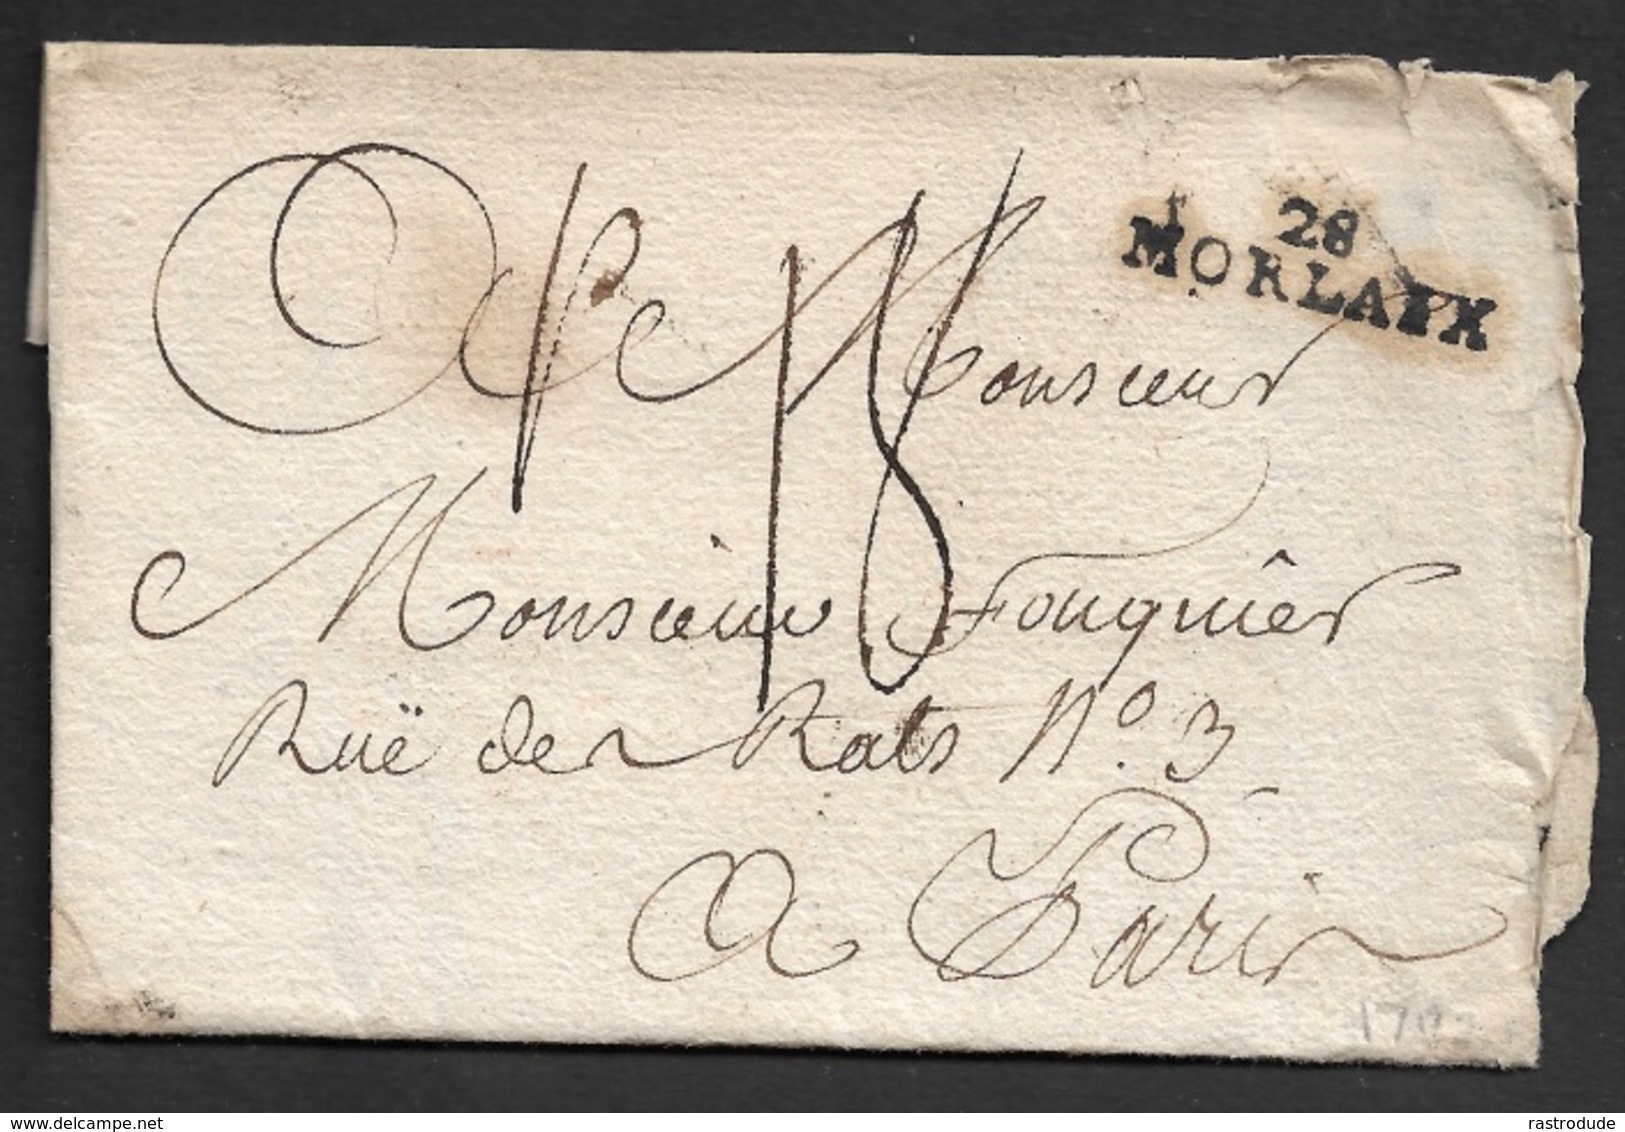 28
MORLAIX
A
Monsieur
18
Monsieur Fouquiêr
Ruë des Rats N.o 3
A Paris
delcampe.net
rastrodude